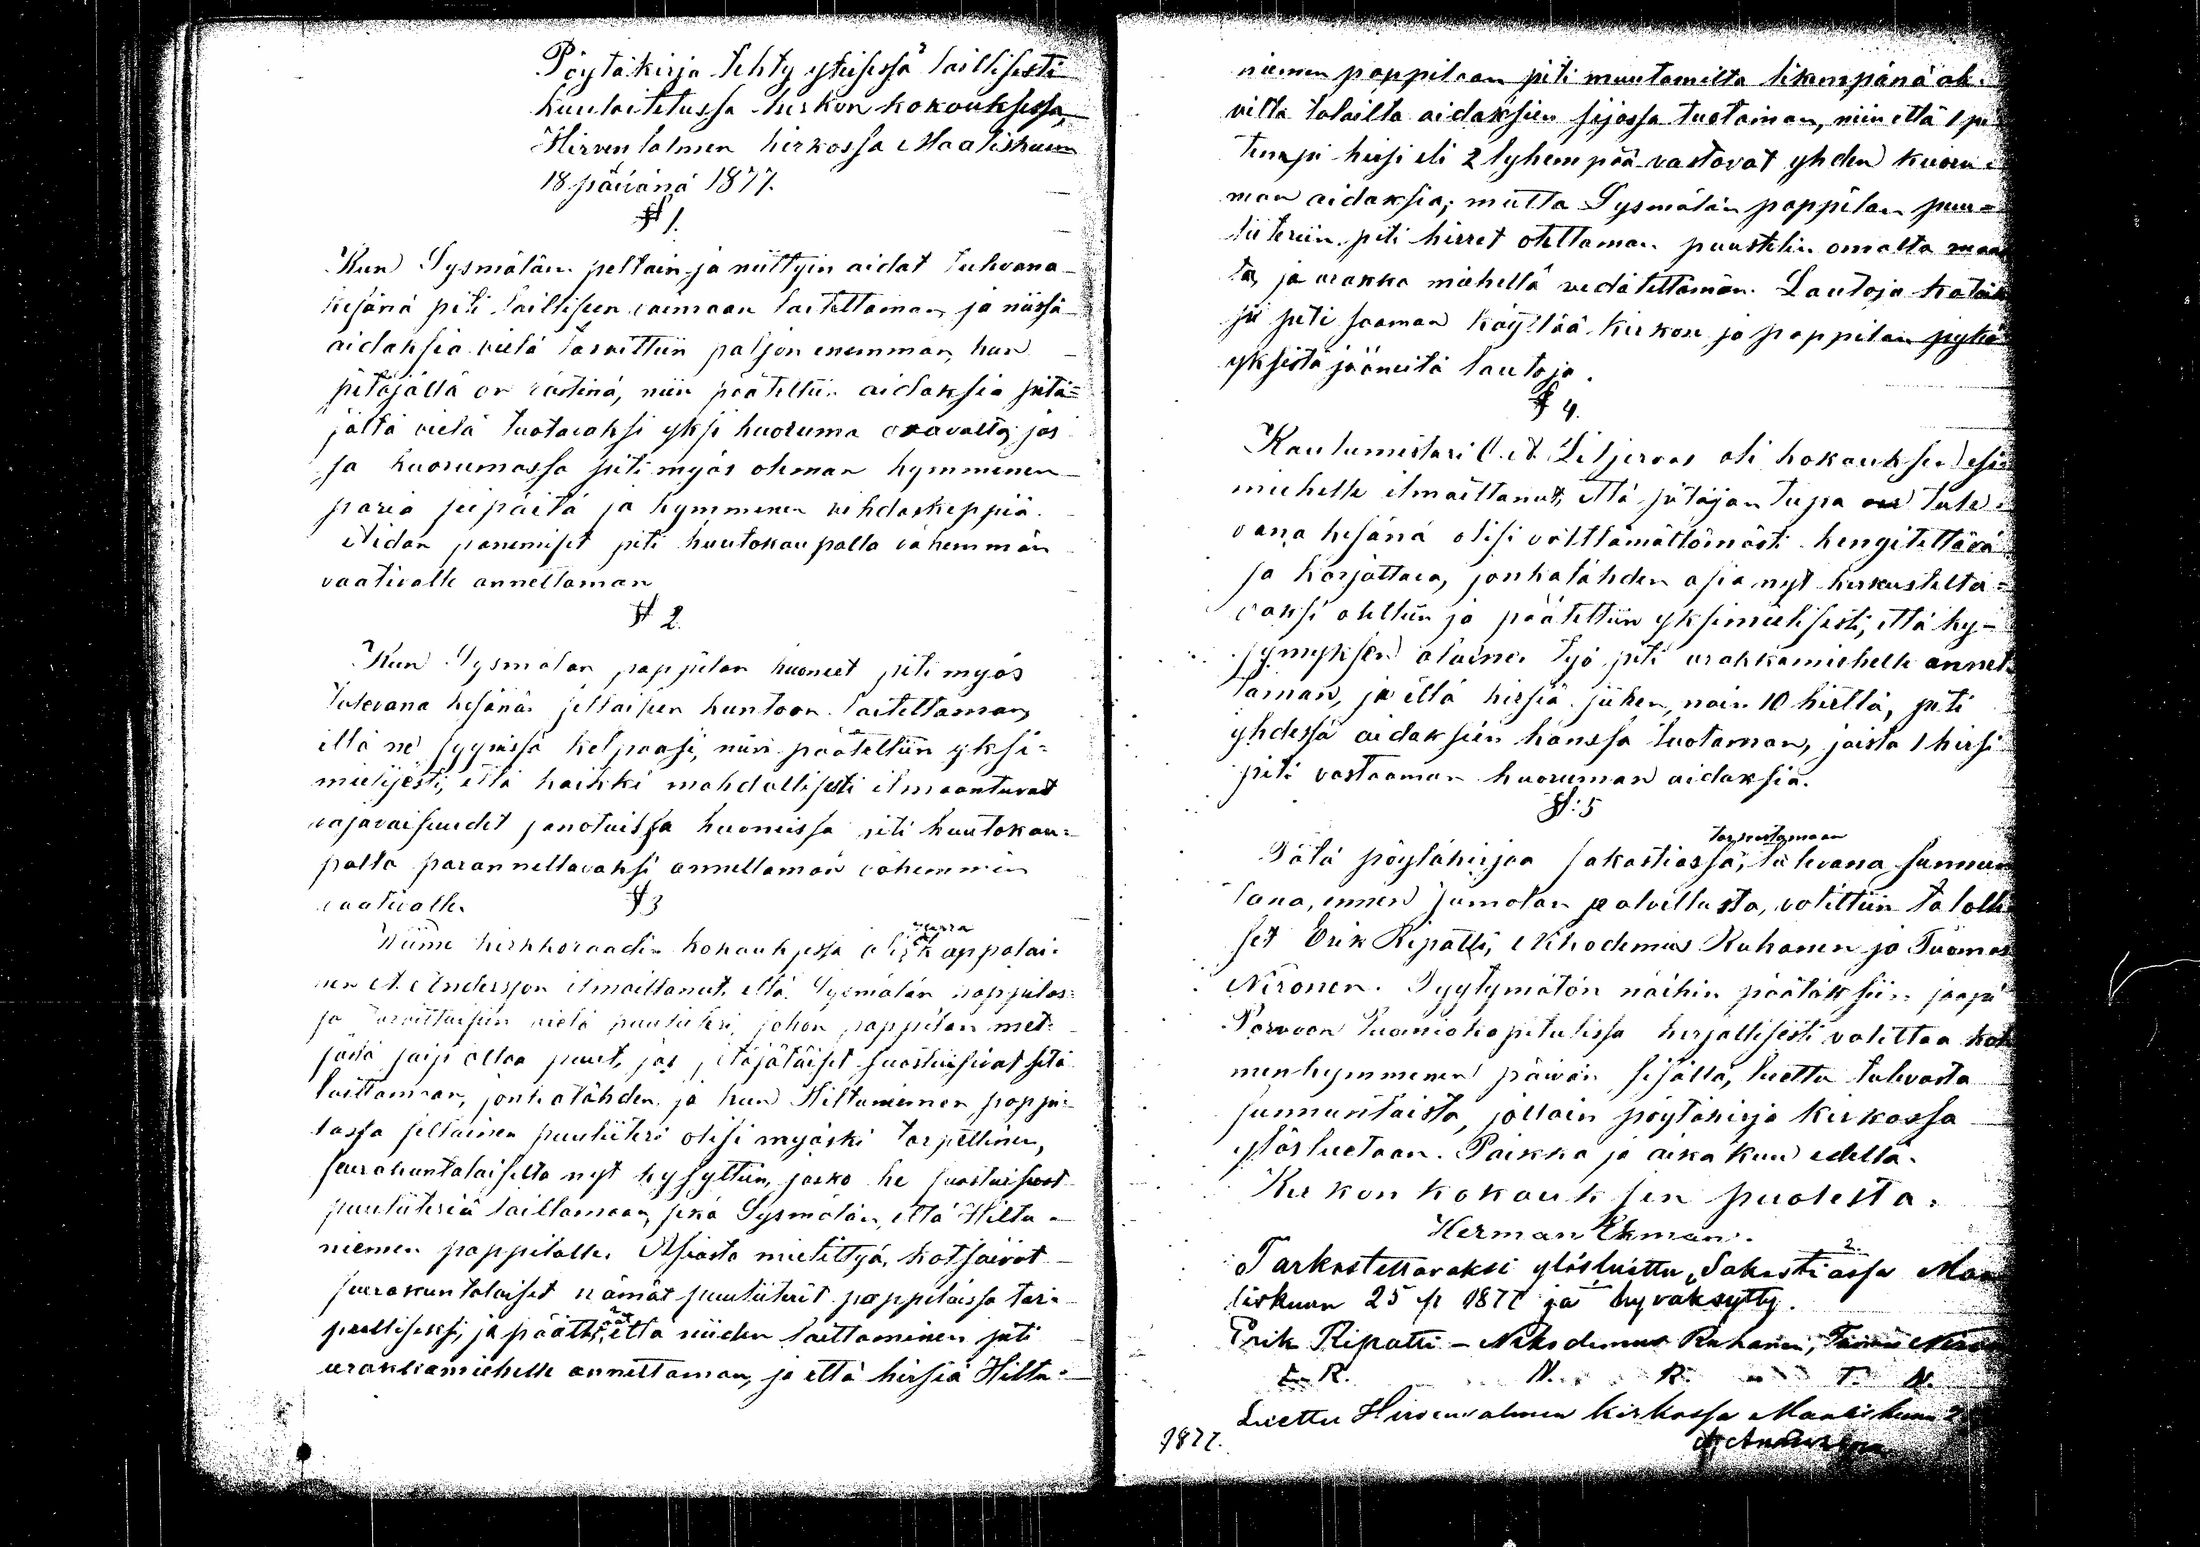 Pöytäkirja tehty yleisessä laillisesti
kuulutetussa kirkon kokouksessa,
Hirvensalmen kirkossa Maaliskuun
18 päivänä 1877.
§ 1.
Kun Sysmälän peltoin ja niittyin aidat tulevana
kesänä piti lailliseen voimaan laitettaman, ja niissä
aidaksia vielä tarvittiin paljon enemmän, kun
pitäjällä on rästinä, niin päätettiin aidaksia pitä=
jältä vielä tuotavaksi yksi kuoruma osavalta, jos
sa kuorumassa piti myös oleman kymmenen
paria seipäitä ja kymmenen vihdaskeppiä.
Aidan panemiset piti huutokaupalla vähemmän
vaativalle annettaman
§ 2.
Kun Sysmälän pappilan huoneet piti myös
tulevana kesänä sellaiseen kuntoon laitettaman,
että ne syynissä kelpaasi, niin päätettiin yksi=
mielisesti, että kaikki mahdollisesti ilmaantuvat
vajavaisuudet sanotuissa huoneissa piti huutokau=
palla parannettavaksi annettaman vähemmin
vaativalle.
§ 3
Wiime kirkkoraadin kokouksessa oli kappalai=
nen A. Andersson ilmoittanut, että Sysmälän pappilas=
sa tarvittaisiin vielä puuliiteri, johon pappilan met=
sästä saisi ottaa puut, jos pitäjäläiset suostuisivat sitä
laittamaan, jonkatähden ja kun Hiltuniemen pappi=
lassa sellainen puuliiteri olisi myöski tarpeellinen,
seurakuntalaisilta nyt kysyttiin, josko he suostuisivat
puuliiteriä laittamaan, sekä Sysmälän, että Hiltu=
niemen pappilalle. Asiasta mietittyä, katsoivat
seurakuntalaiset nämät puuliiterit pappiloissa tar=
peelliseksi, ja päätti, että niiden laittaminen piti
urakkamiehelle annettaman, ja että hirsiä Hiltu=
niemen pappilaan piti muutamilta likempänä ole
vilta taloilta aidaksien sijassa tuotaman, niin että 1 pi
tempi hirsi eli 2 lyhempää vastaavat yhden kuoru=
man aidaksia; mutta Sysmälän pappilan puu=
liiteriin piti hirret otettaman puustelin omalta maal
ta, ja urakka miehellä vedätettämän. Lautoja katok
sii piti saaman käyttää kirkon ja pappilan
yksistä jääneitä lautoja.
§ 4.
Kantumestari O. A. Liljeroos oli kokouksen esi=
miehelle ilmoittanut, että pitäjän tupa tule=
vana kesänä olisi välttämättömästi kengitettävä
ja korjattava, jonkatähden asia nyt keskustelta=
vaksi otettiin ja päätettiin yksimielisesti, että ky=
symyksen alainen työ piti urakkamiehelle annet
taman, ja että hirsiä siihen, noin 10 hirttä, piti
yhdessä aidaksien kanssa tuotaman, joista 1 hirsi
piti vastaaman kuoruman aidaksia.
§: 5
tarkastamaan
Tätä pöytäkirjaa sakastiassa, tulevana sunnun
taina, ennen Jumalan palvellusta, valittiin talolli
set Erik Ripatti, Nikodemus Ruhanen ja Tuomas
Nironen. Tyytymätön näihin päätöksiin saapi
Porvoon Tuomiokapitulissa kirjallisesti valittaa kol
menkymmenen päivän sisällä, luettu tulevasta
sunnuntaista, jolloin pöytäkirja kirkossa
ylösluetaan. Paikka ja aika kuin edellä.
Kirkon kokouksen puolesta:
Herman Ekman.
Tarkastettavaksi ylösluettu Sakastiassa Maa
liskuun 25 p 1877 ja hyväksytty.
Erik Ripatti – Nikodemus Ruhanen, Tuomas Niron
E. R. N. R. T. N.
Luettu Hirvensalmen kirkossa Maaliskuun 2
1877.
A. Andersson